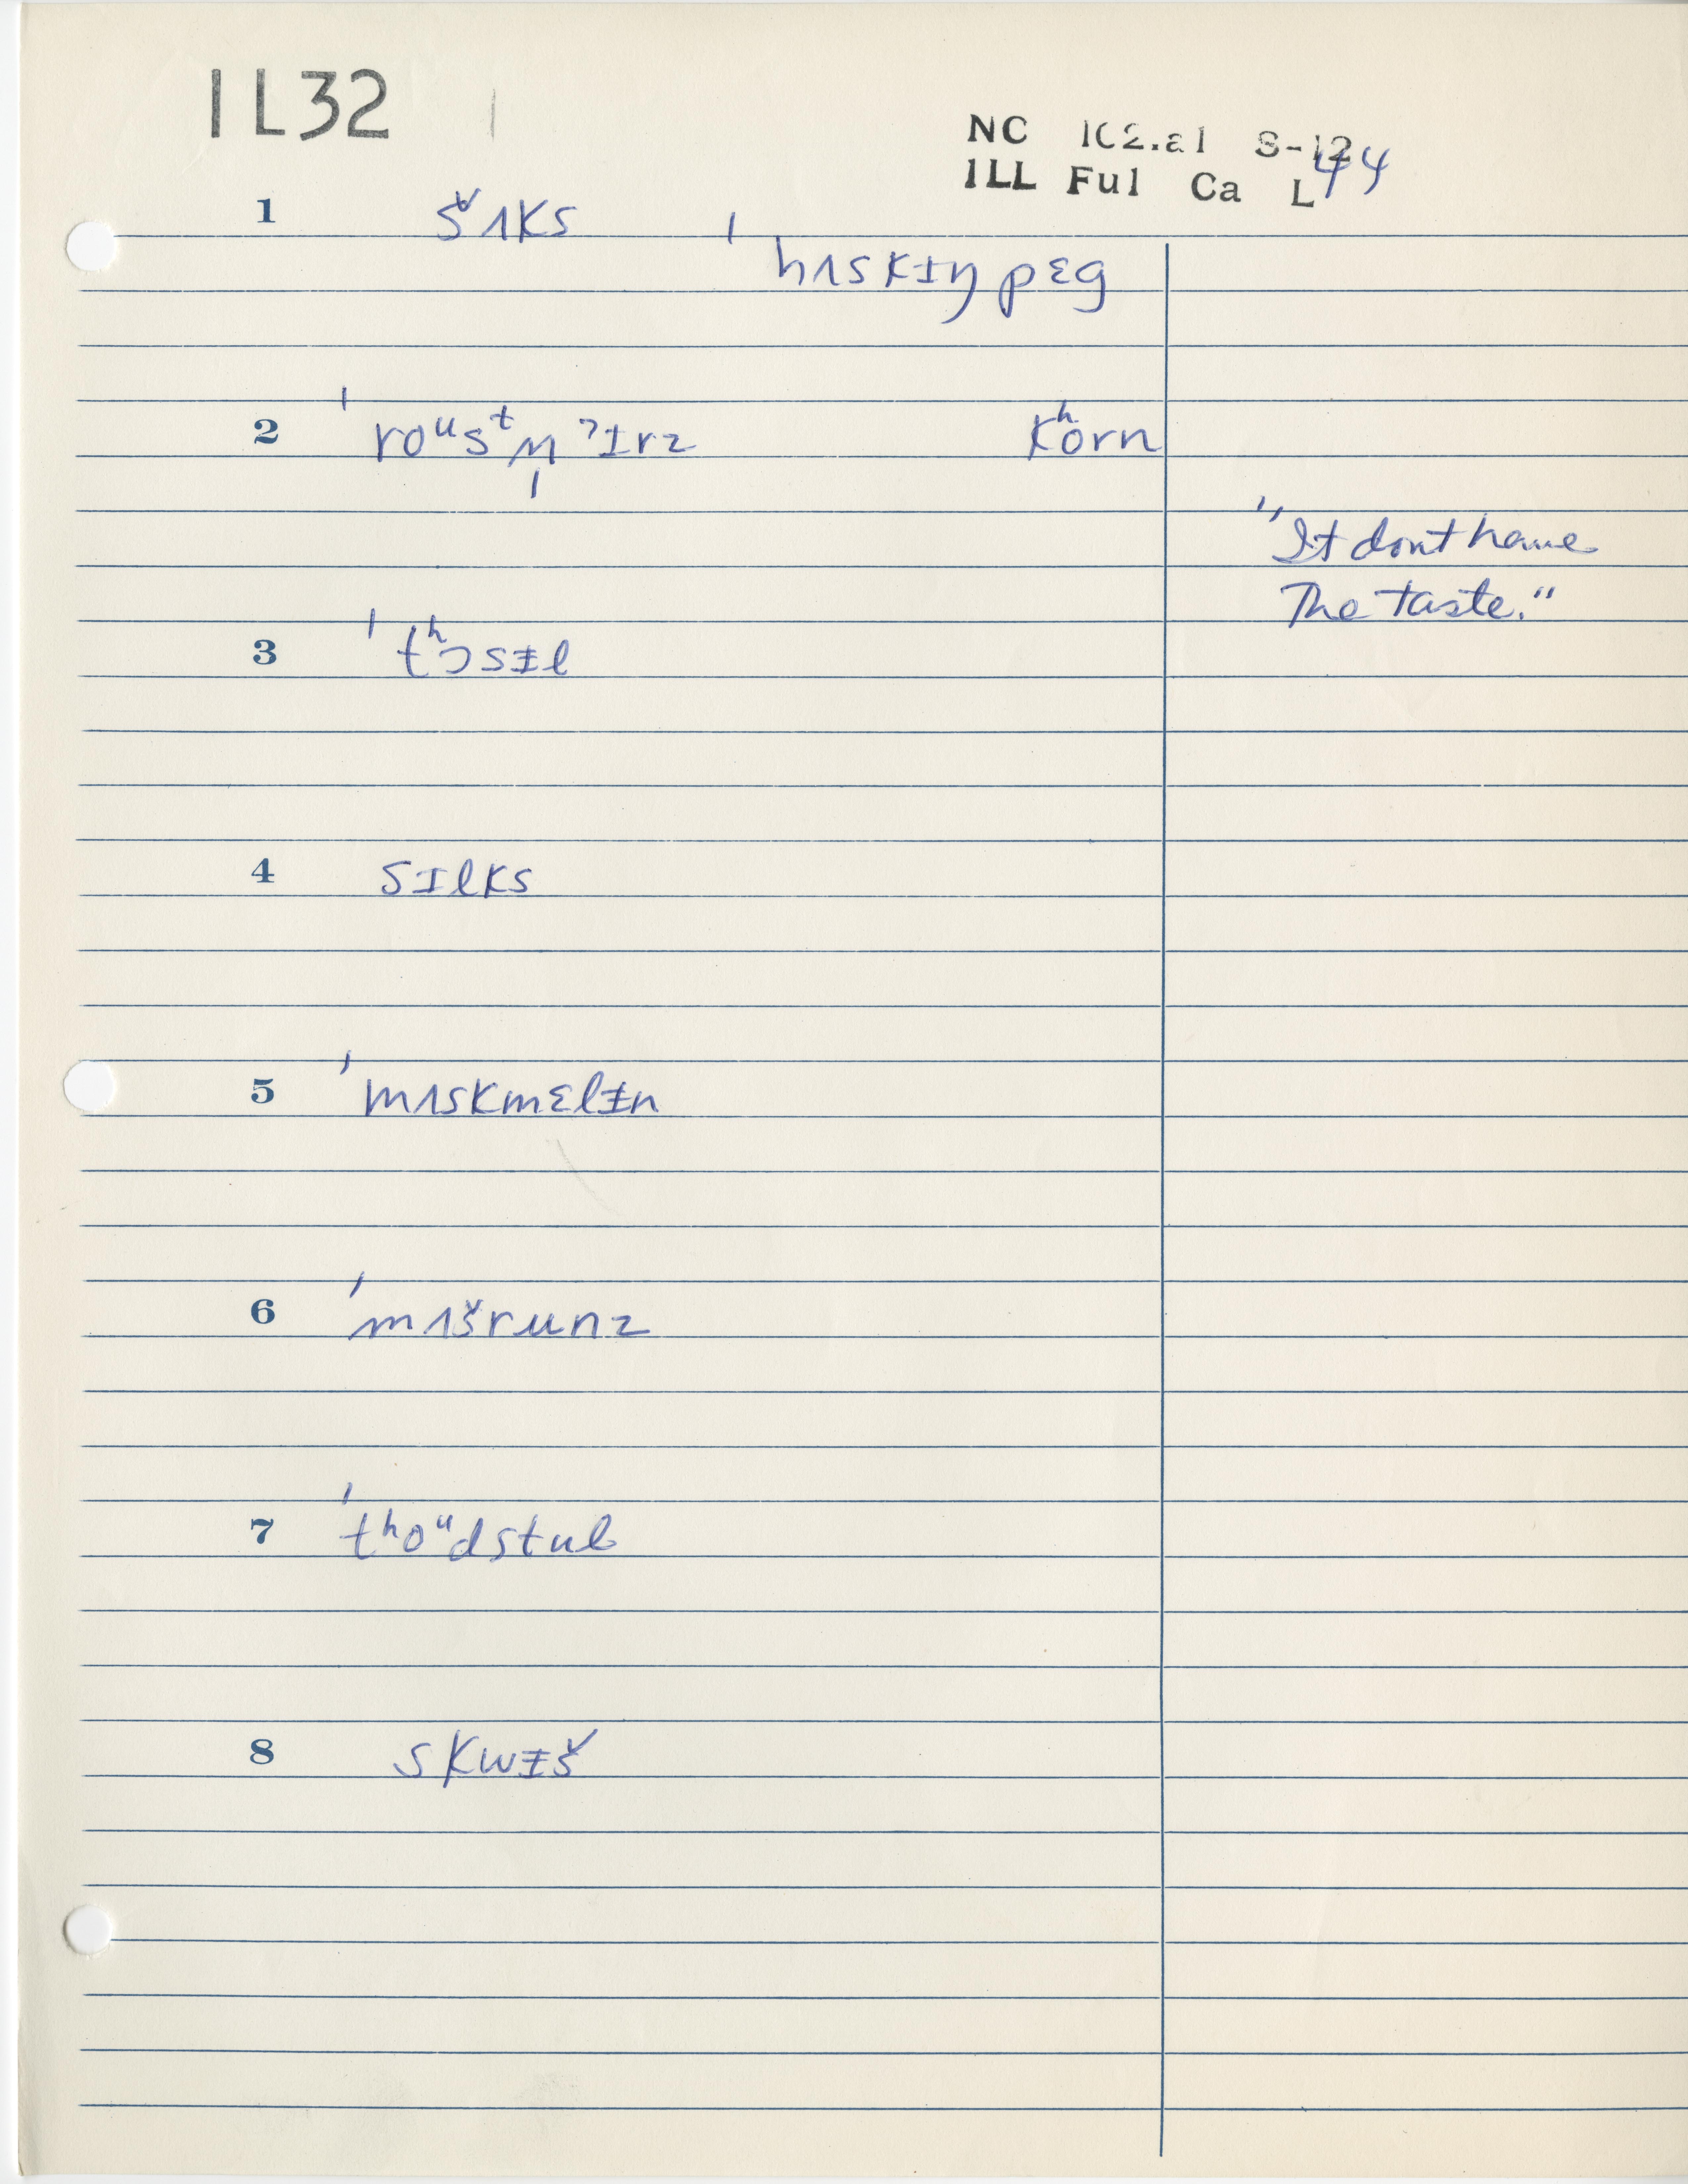 IL32
NC 1C2.a1 S-12
ILL Ful Ca L44
1 šʌks ˈhʌskɪŋ pɛg
2 ˈroᵘsᵗn̩ ʔɪrz kʰorn
"It dont have
The taste."
3 ˈtʰɔsɨl
4 sɪlks
5 ˈmʌskmɛlɨn
6 ˈmʌšrunz
7 ˈtʰoᵘdstul
8 skwɨš